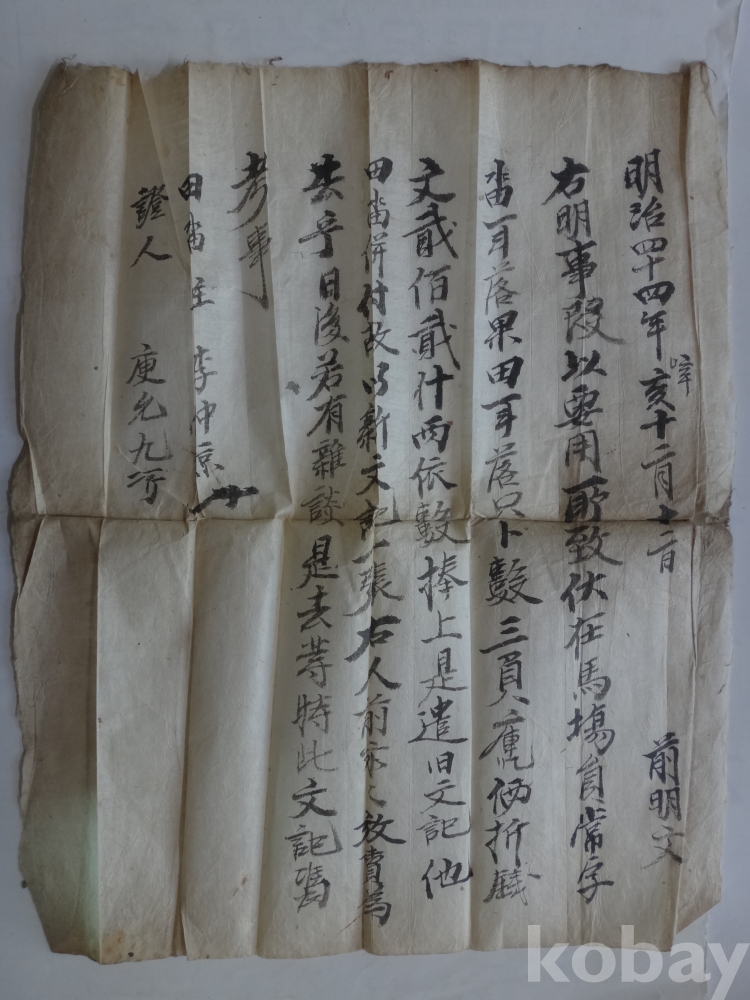 明治四十四年辛亥十二月十二日 前明文
右明事段以要用所致伏在馬場員常字
畓一斗落果田一斗落只卜數三負㢱価折錢
文貳佰貳什兩依數捧上是遣旧文記他
田畓併付故以新文記一張右人前永永放賣爲
去乎日後若有雜談是去等將此文記憑
考事
田畓主 李仲京
證人 庾允九
kobay